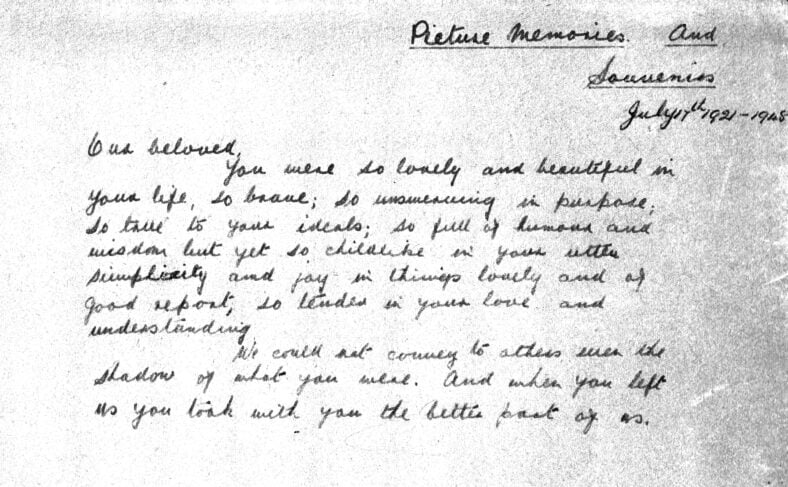 Picture Memories. And
Souvenirs
July 17th 1921-1948
Our beloved,
You were so lovely and beautiful in
your life, so brave; so unswerving in purpose;
so true to your ideals; so full of humour and
wisdom but yet so childlike in your utter
simplicity and joy in things lovely and of
good report, so tender in your love and
understanding
We could not convey to others even the
shadow of what you were. And when you left
us you took with you the better part of us.